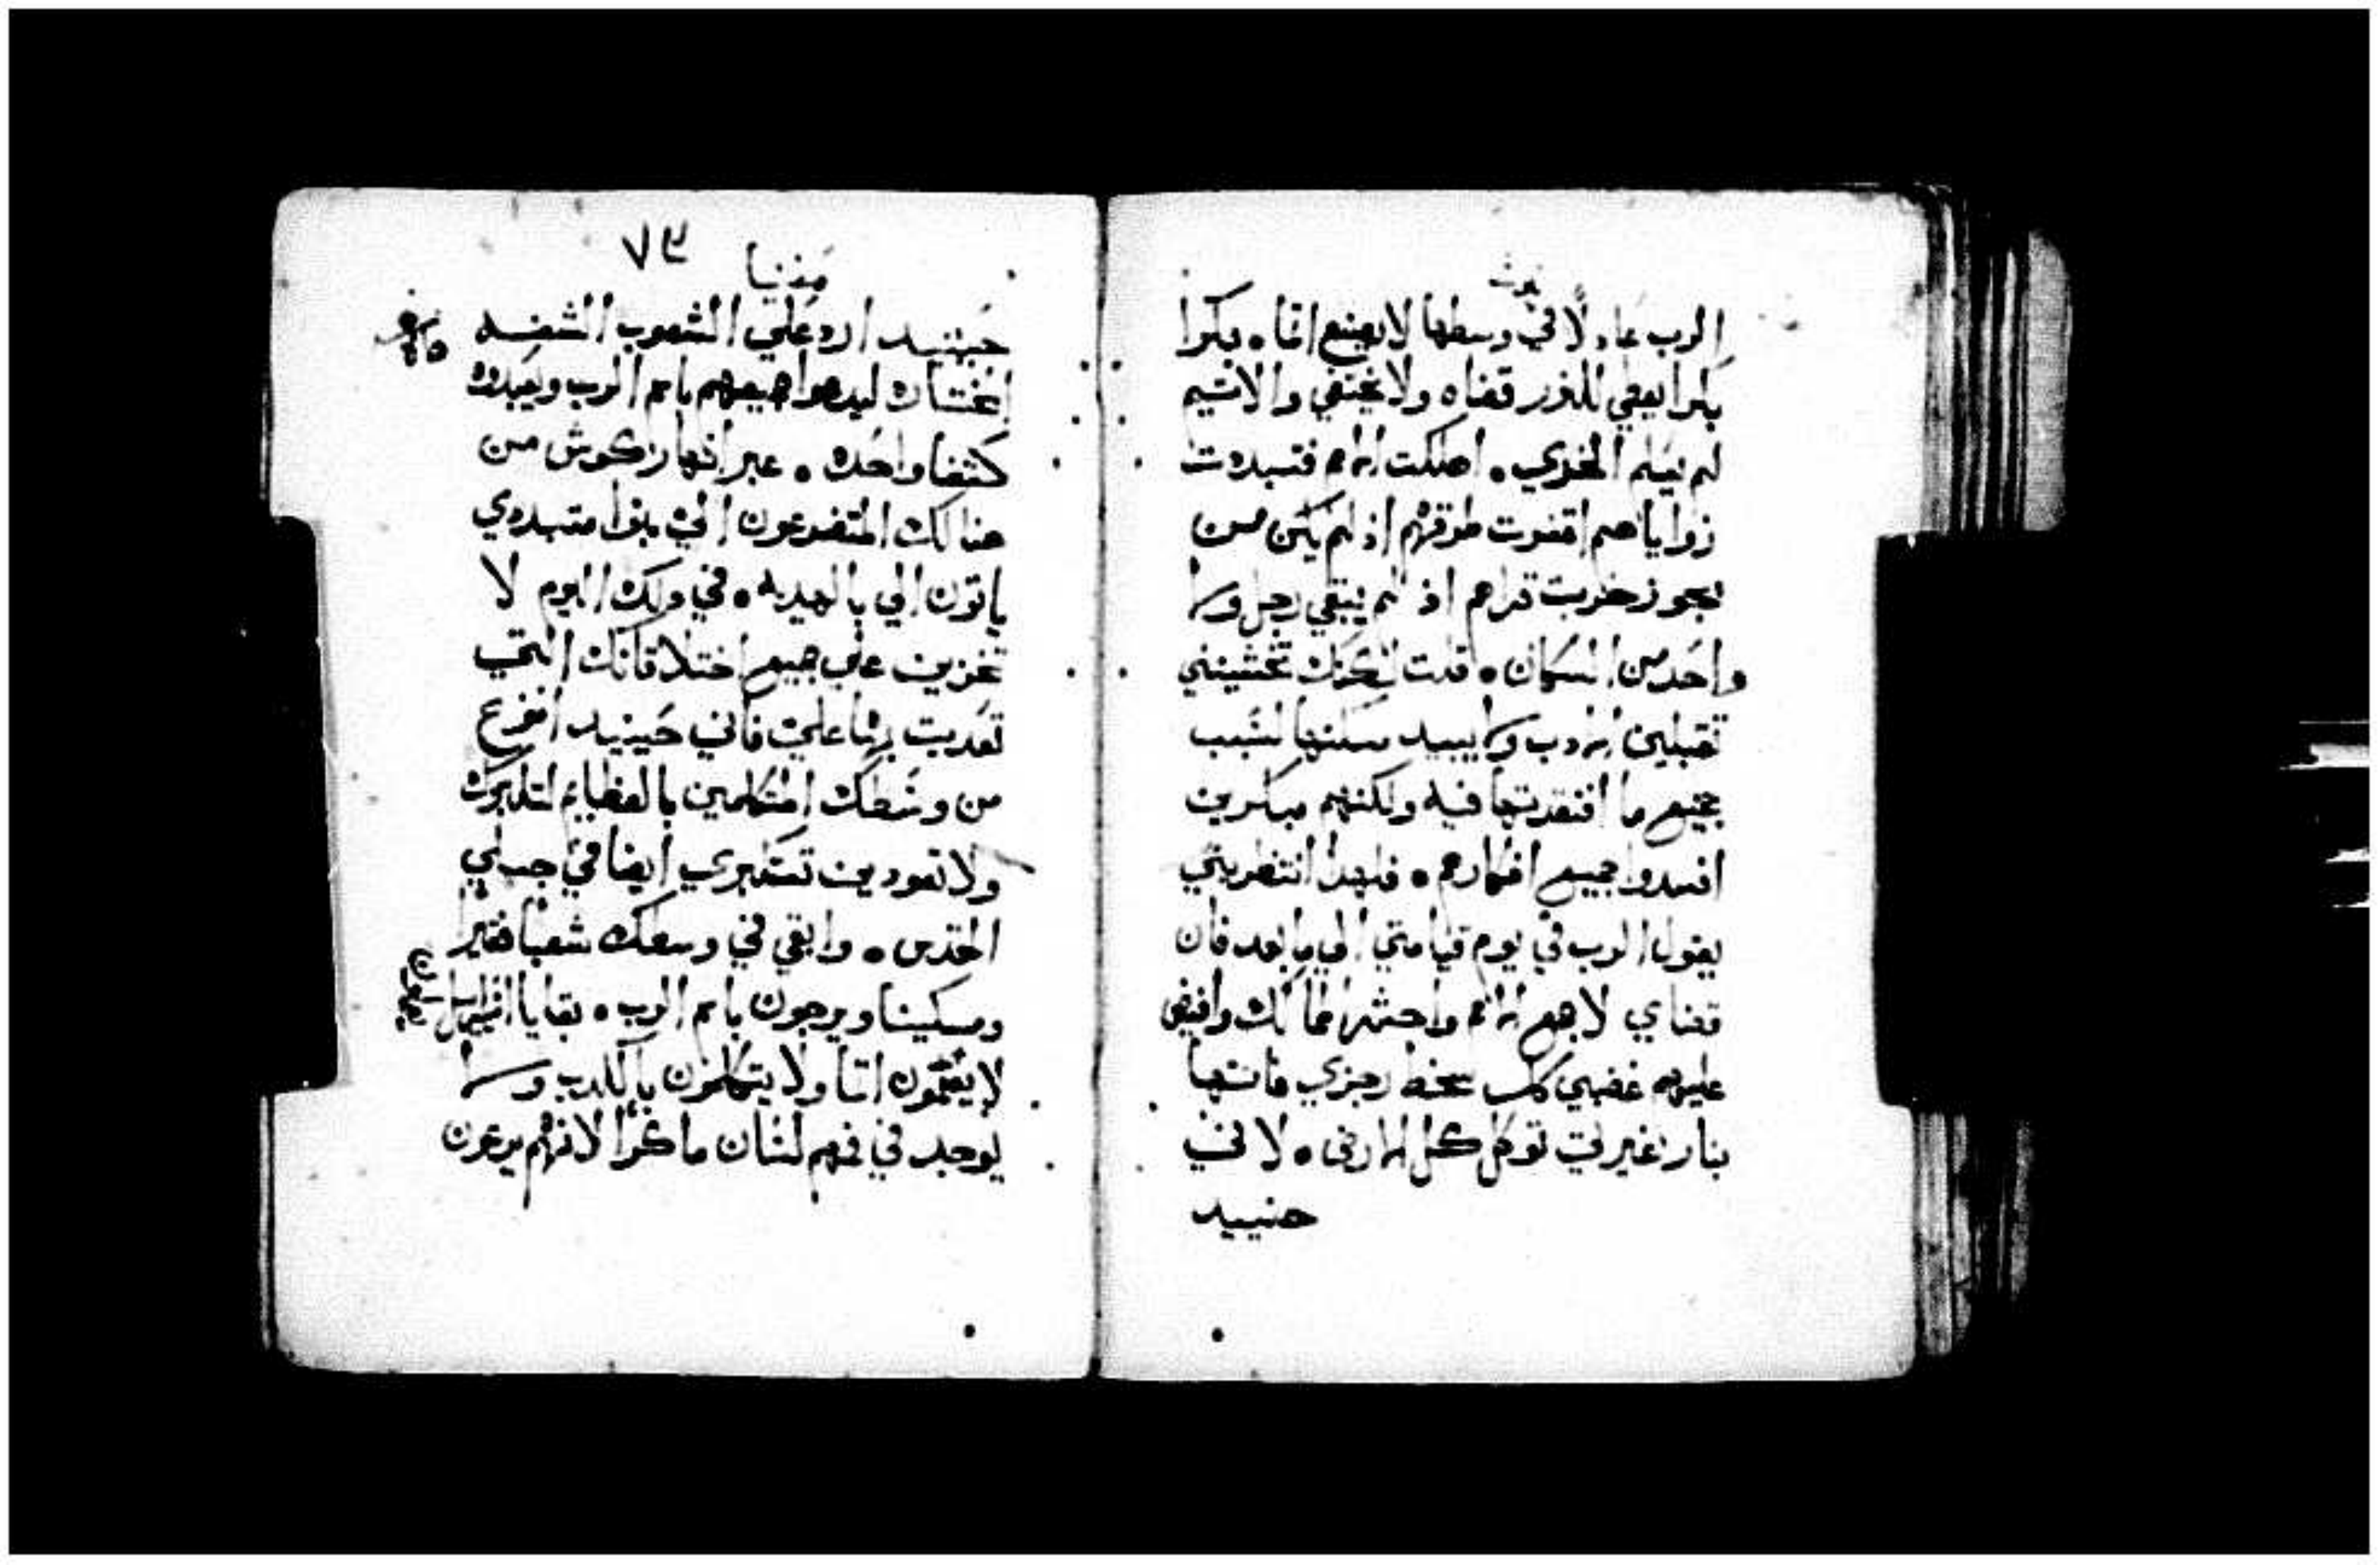 نبوة
الرب عادلا في وسطها لا يصنع اثما ۰ بكرا
بكرا يعطي للنور قضاه ولا يختفي والاثيم
لم يعلم الخزي ۰ اهلكت الامم فتبددت
زواياهم اقفرت طرقهم اذ لم يكن من
يجوز خربت قراهم اذ لم يبقي رجل ولا
واحد من السكان ۰ قلت لكنك تخشينني
تقبلين الادب ولا يبيد مسكنها لسبب
جميع ما افتقدتها فيه ولكنهم مبكرين
افسدوا جميع افكارهم ۰ فلهذا انتظريني
يقول الرب في يوم قيامتي الي ما بعد فان
قضاي لاجمع الامم واحشر الممالك وافيض
عليهم غضبي كل سخط رجزي فانها
بنار غيرتي توكل كل الارض ۰ لاني
حنييد
صفنيا ٧٣
حينيد ارد علي الشعوب الشفه
مختاره ليدعوا جميعهم باسم الرب ويعبدوه
كتفا واحده ۰ عبر انهار كوش من
هنالك المتضرعون الي بنوا متبددي
ياتون الي بالهديه ۰ في ذلك اليوم لا
تخزين علي جميع اختلاقاتك التي
تعديت بها علي فاني حينيد انزع
من وسطك المتكلمين بالعظايم لتكبرك
ولا تعودين تستكبري ايضا في جبلي
المقدس ۰ وابقي في وسطك شعبا فقيرا
ومسكينا ويرجون باسم الرب ۰ بقايا اسراييل
لا يعملون اثما ولا يتكلمون بالكذب ولا
يوجد في فمهم لسان ماكرا لانهم يرعون